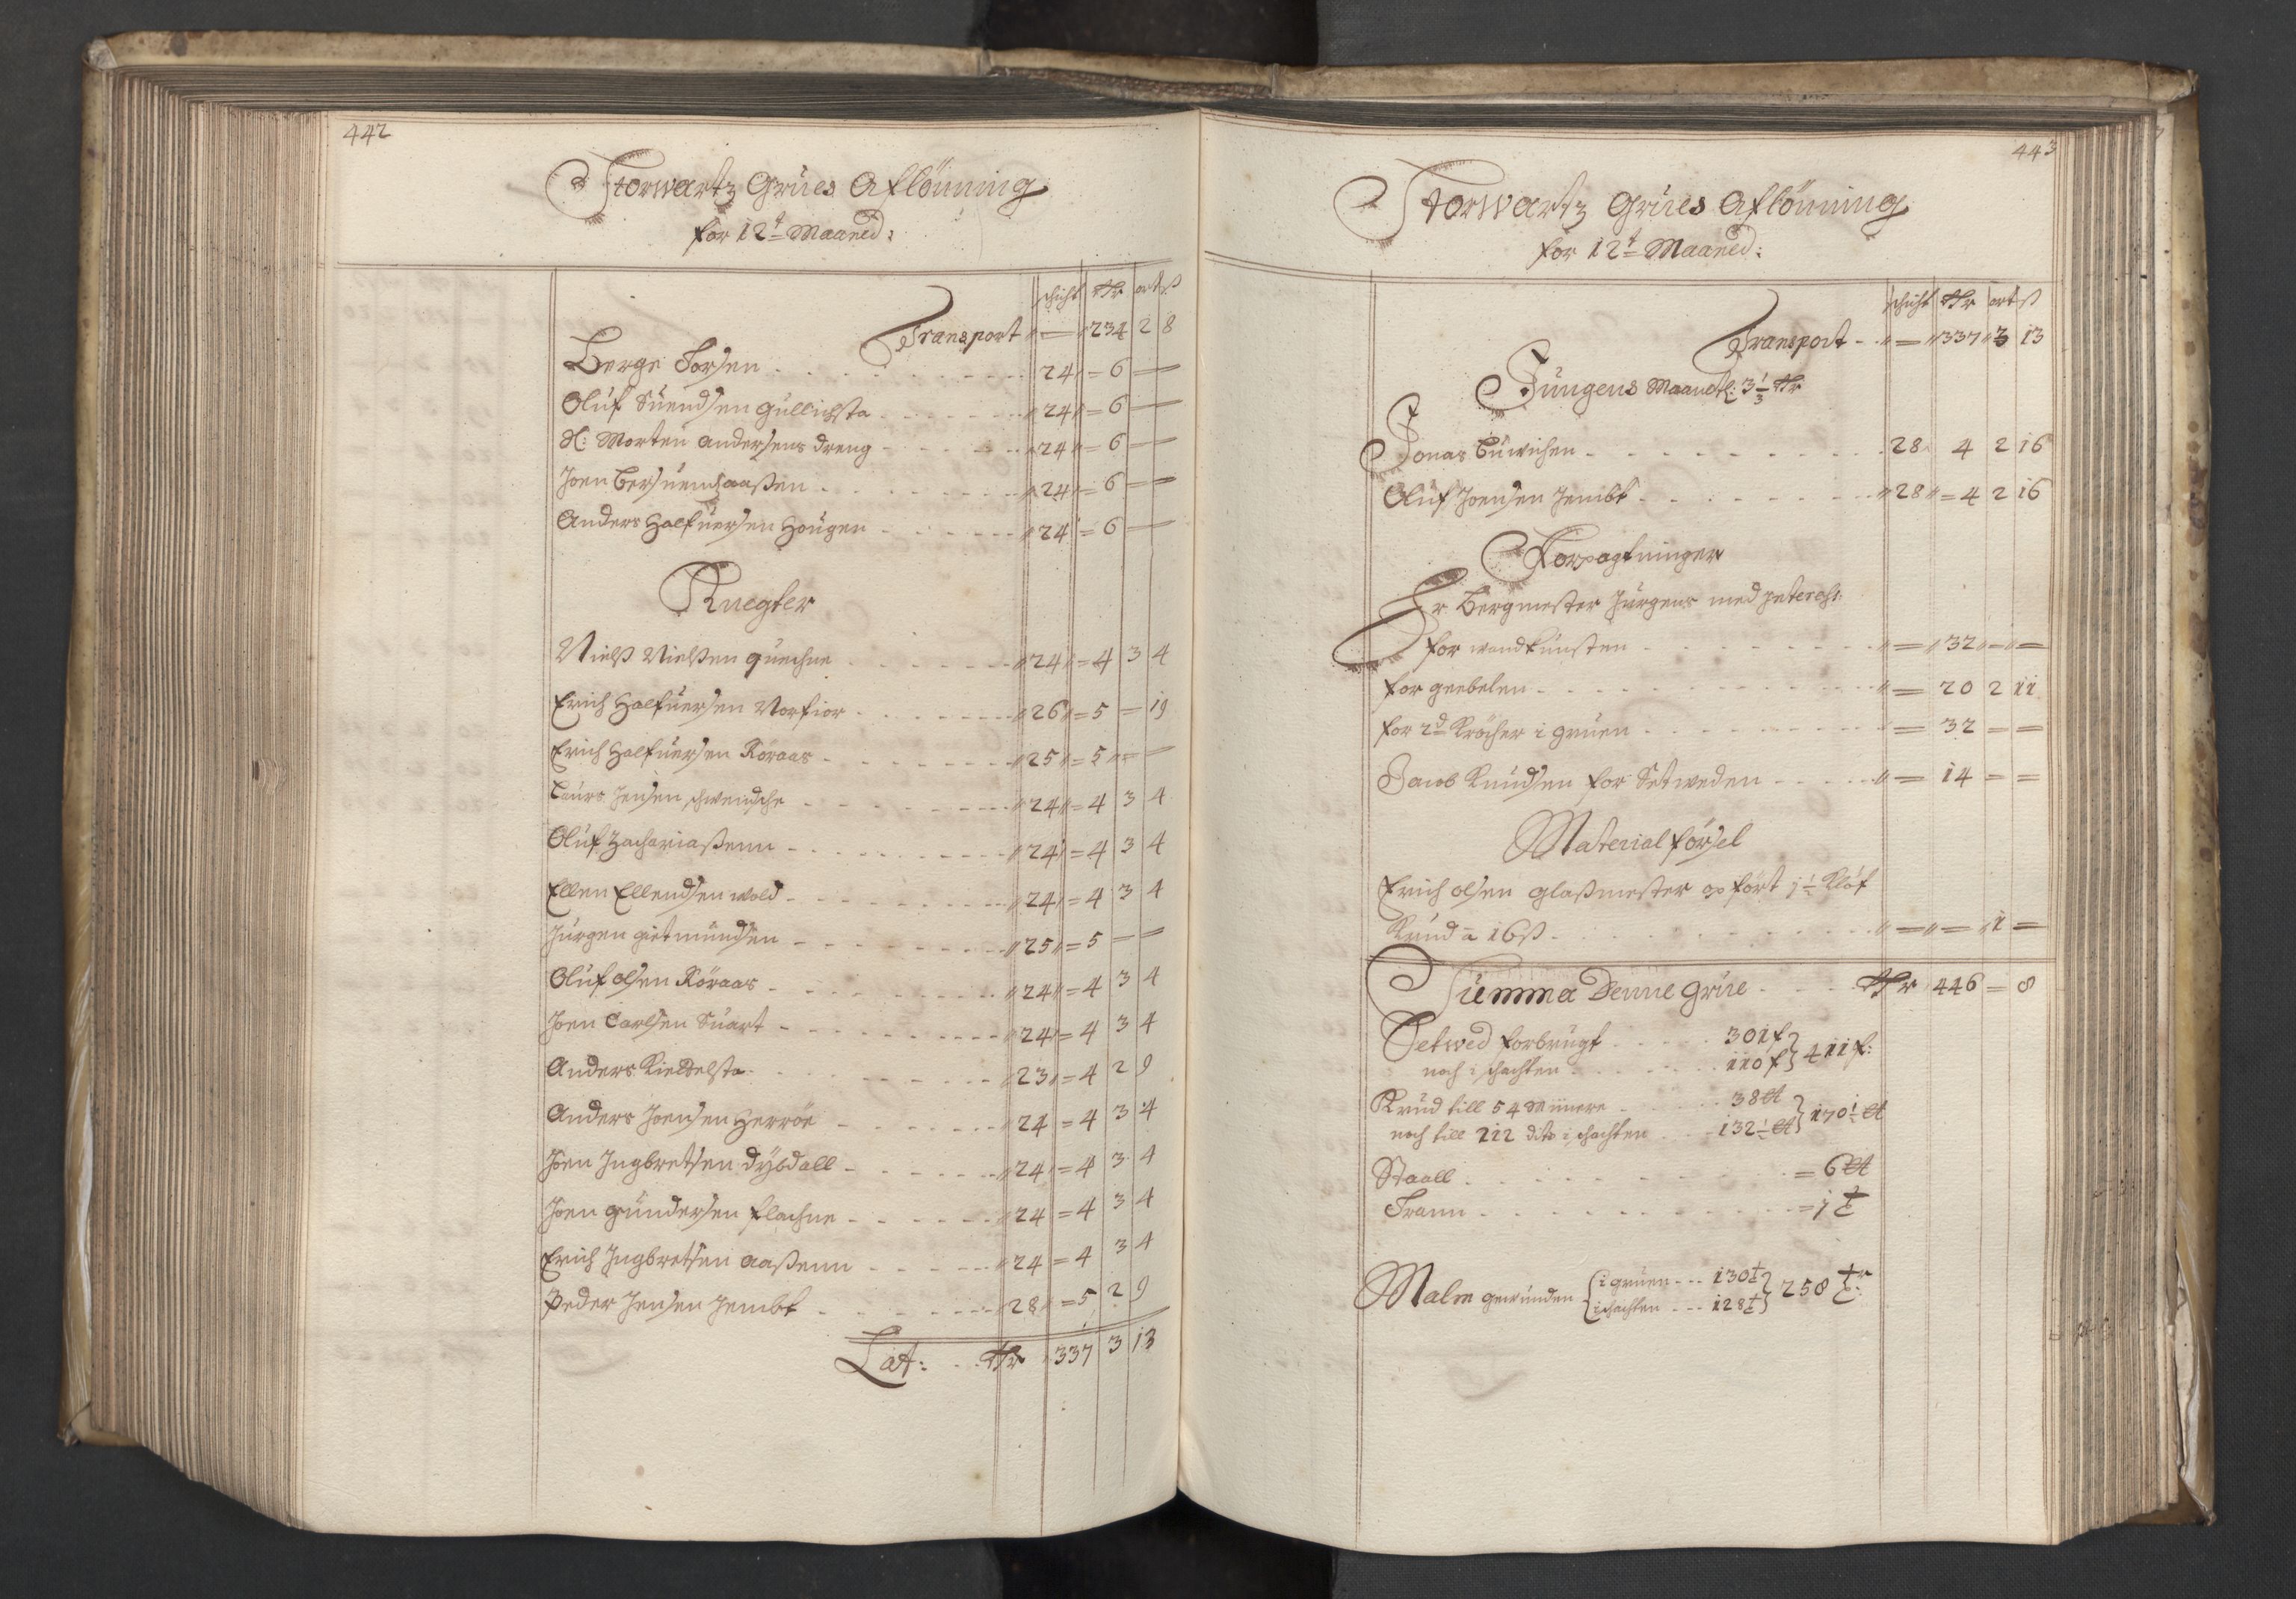 442
Storwartz Grües Aflönning
for 12t Maaned:
schicht Rdr ort ß
Transport " — " 234 2 8
Berge Torsen 24 = 6 —
Oluf Suendsen Gullichsta 24 = 6 —
H: Morten Andersens dreng 24 = 6 —
Joen 24 = 6 —
Anders Halfuersen Hougen 24 = 6 —
Knegter
Nielß Nielßen quechne 24 = 4 3 4
Erich Halfuersen Norfior 26 = 5 — 19
Erich Halfuersen Röraas 25 = 5 = —
Laurs Jensen schwendche 24 = 4 3 4
Oluf Zachariaßenn 24 = 4 3 4
Ellen Ellendsen wold 24 = 4 3 4
Jürgen gietmundsen 25 = 5 — —
Oluf olsen Röraas 24 = 4 3 4
Joen Carlsen Suart 24 = 4 3 4
Anders Kieldelsta 23 = 4 2 9
Anders Joensen Herröe 24 = 4 3 4
Joen Ingbretsen dÿbdall 24 = 4 3 4
Joen gundersen flachne 24 = 4 3 4
Erich Ingbretsen aaßenn 24 = 4 3 4
Peder Jensen Jembt 28 = 5 2 9
Lat: Rdr 337 3 13
443
Storwartz Grües Aflönning
for 12t Maaned:
schicht Rdr ort ß
Transport " — " 337 3 13
Jungens Maanetl: 3 1/3 Rdr
Jonas Buwichen 28 4 2 16
Oluf Joensen Jembt 28 = 4 2 16
Forpagtninger
Hr Bergmester Jürgens med
for wandkunsten " — " 32 — —
for geebelen " — 20 2 11
for 2d Kröcher i gruen — 32 — —
Jacob Knudsen for Setweden " — 14 — —
Material försel
Erich olsen glaßmester opfört 1 1/2 Klöf
Krud a 16 ß " — " — " 1 —
Summa Denne Grüe Rdr 446 — 8
Setwed forbrugt 301 f } 411 f:
noch i schachten 110 f
Krud till 54 Minere 38 ℔ } 170 1/2 ℔
noch till 212 dito i schachten 132 1/2 ℔
Staall = 6 ℔
Trann = 1 t
Malm gewunden { i gruen 130 t } 258 tr:
i schachten 128 t